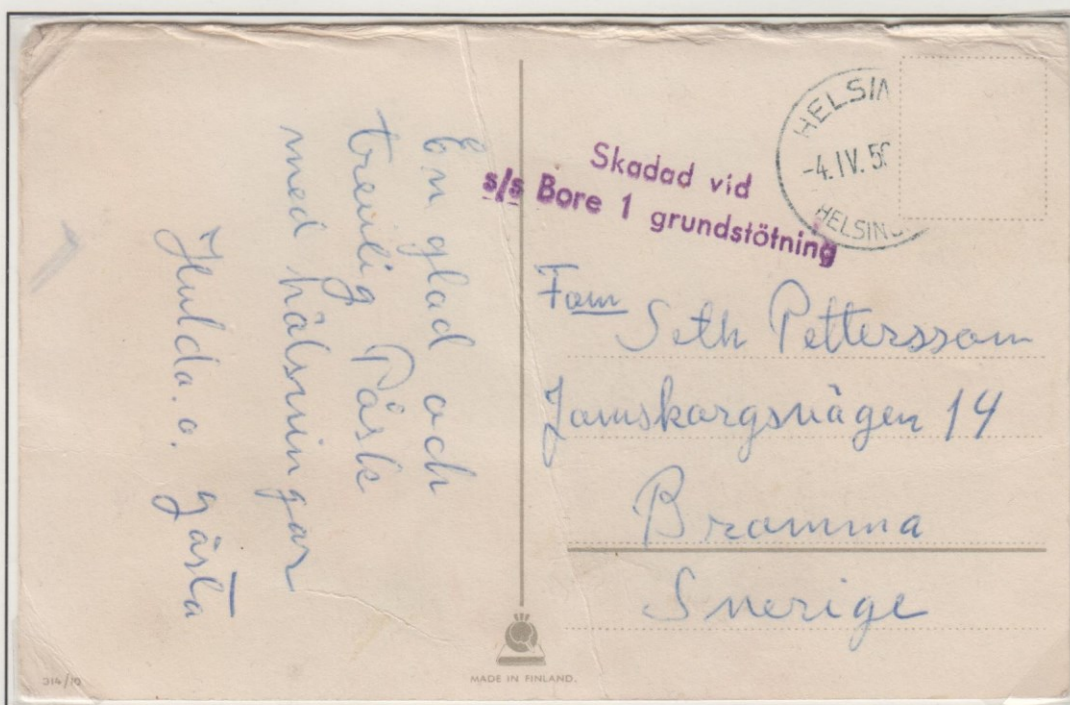 En glad och
trevlig Påsk
med hälsningar
Hulda. o. Gösta
Skadad vid
s/s Bore 1 grundstötning
HELSIN
-4.IV.5
HELSIN
Fam
Seth Pettersson
14
Bromma
Sverige
314/10
MADE IN FINLAND.